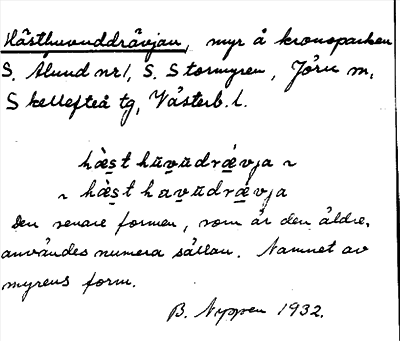 Hästhuvuddrävjan, myr å kronoparken
S. Ålund nr 1, S. Stormyren, Jörn m,
Skellefteå tg, Västerb. l.
hæ̀s̱t hu̅v̱u̅drǽ̱vja ~
~ hæ̀s̱t hav̱u̅drǽ̱vja
Den senare formen, som är den äldre,
användes numera sällan. Namnet av
myrens form.
B. Nyppen 1932.